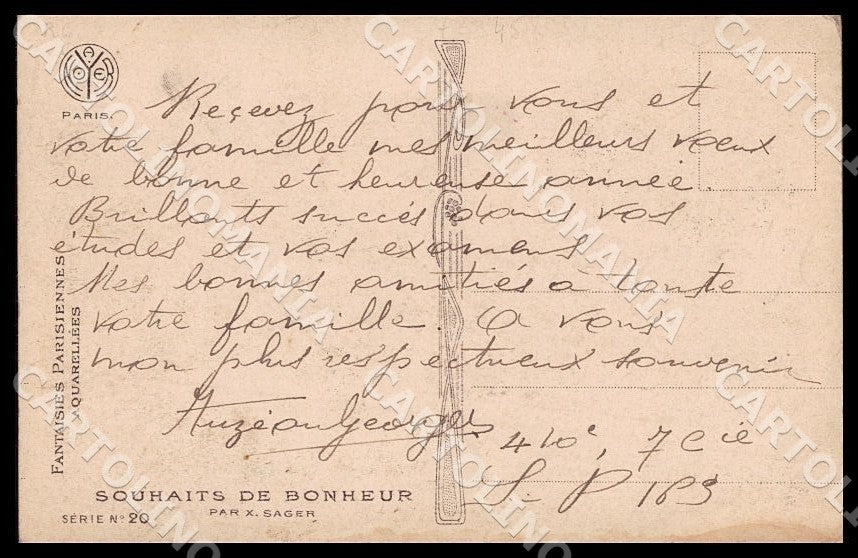 PARIS.
Reçevez pour vous et
votre famille mes meilleurs voeux
de bonne et heureuse année.
Brillants succés dans vos
études et vos examens
Mes bonnes amitiés a toute
votre famille. A vous
mon plus respectueux souvenir
Georges
410e, 7 Cie
S. P 163
FANTAISIES PARISIENNES
AQUARELLÉES
SOUHAITS DE BONHEUR
PAR X. SAGER
SÉRIE No 20
CARTOLINOMANIA